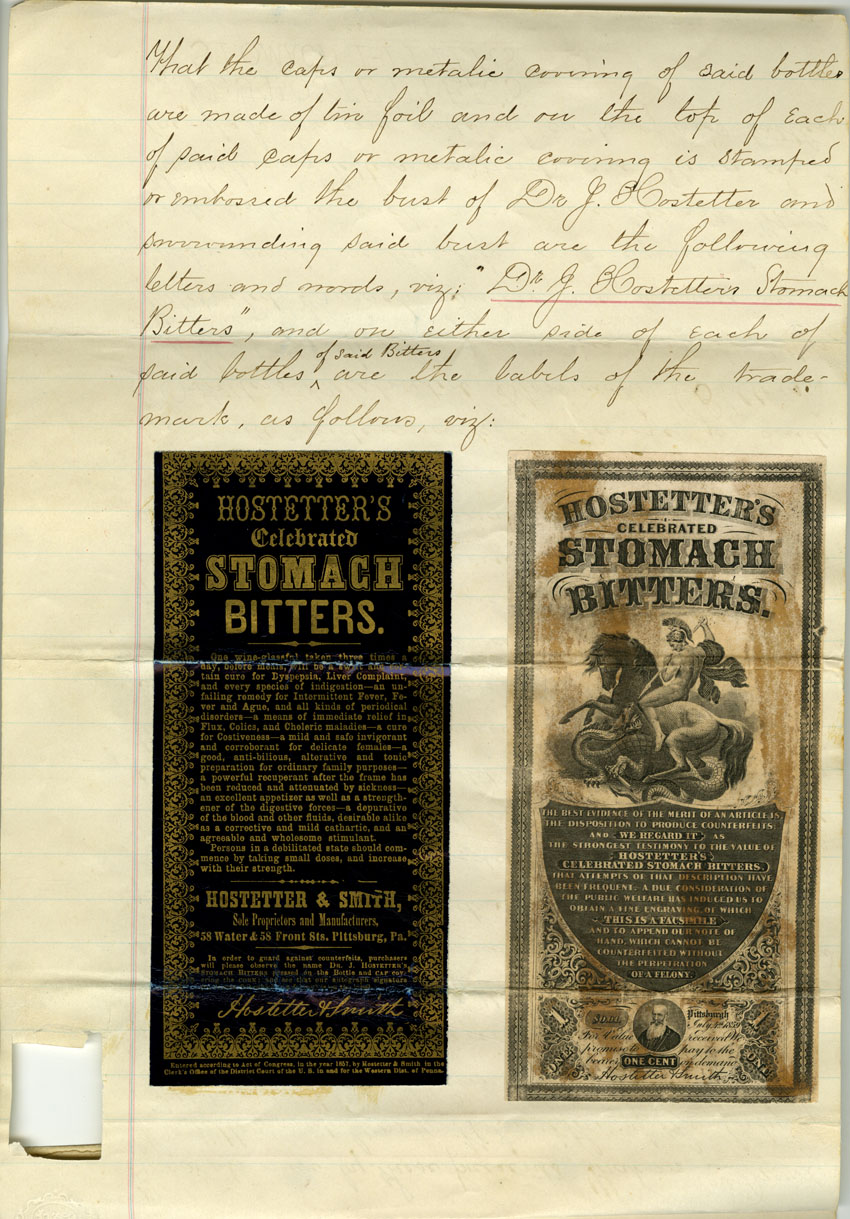 That the caps or metalic covering of said bottles
are made of tin foil and on the top of each
of said caps or metalic covering is stamped
or embossed the bust of Dr J. Hostetter and
surrounding said bust are the following
letters and words, viz: "Dr. J. Hostetters Stomach
Bitters", and on either side of each of
said bottles of said Bitters are the labels of the trade-
mark, as follows, viz:
HOSTETTER'S
Celebrated
STOMACH
BITTERS.
One wine-glassful taken three times a
day, before meals, will be a
tain cure for Dyspepsia, Liver Complaint,
and every species of indigestion—an un-
failing remedy for Intermittent Fever, Fe-
ver and Ague, and all kinds of periodical
disorders—a means of immediate relief in
Flux, Colics, and Choleric maladies—a cure
for Costiveness—a mild and safe invigorant
and corroborant for delicate females—a
good, anti-bilious, alterative and tonic
preparation for ordinary family purposes—
a powerful recuperant after the frame has
been reduced and attenuated by sickness—
an excellent appetizer as well as a strength-
ener of the digestive forces—a depurative
of the blood and other fluids, desirable alike
as a corrective and mild cathartic, and an
agreeable and wholesome stimulant.
Persons in a debilitated state should com-
mence by taking small doses, and increase
with their strength.
HOSTETTER & SMITH,
Sole Proprietors and Manufacturers,
58 Water & 58 Front Sts. Pittsburg, Pa.
In order to guard against counterfeits, purchasers
will please observe the name DR. J. HOSTETTER'S
STOMACH BITTERS pressed on the Bottle and CAP cov-
ering the CORK; and see that our autograph signature
Hostetter & Smith
Entered according to Act of Congress, in the year 1857, by Hostetter & Smith in the
Clerk's Office of the District Court of the U. S. in and for the Western Dist. of Penna.
HOSTETTER'S
CELEBRATED
STOMACH
BITTERS.
THE BEST EVIDENCE OF THE MERIT OF AN ARTICLE IS,
THE DISPOSITION TO PRODUCE COUNTERFEITS;
AND WE REGARD IT AS
THE STRONGEST TESTIMONY TO THE VALUE OF
HOSTETTER'S
CELEBRATED STOMACH BITTERS,
THAT ATTEMPTS OF THAT DESCRIPTION HAVE
BEEN FREQUENT. A DUE CONSIDERATION OF
THE PUBLIC WELFARE HAS INDUCED US TO
OBTAIN A FINE ENGRAVING, OF WHICH
THIS IS A FACSIMILE
AND TO APPEND OUR NOTE OF
HAND, WHICH CANNOT BE
COUNTERFEITED WITHOUT
THE PERPETRATION
OF A FELONY.
1 Pittsburgh 1
July 4th 1859
For Value received We
promise to pay to the
bearer ONE CENT on demand
ONE ONE
Hostetter & Smith